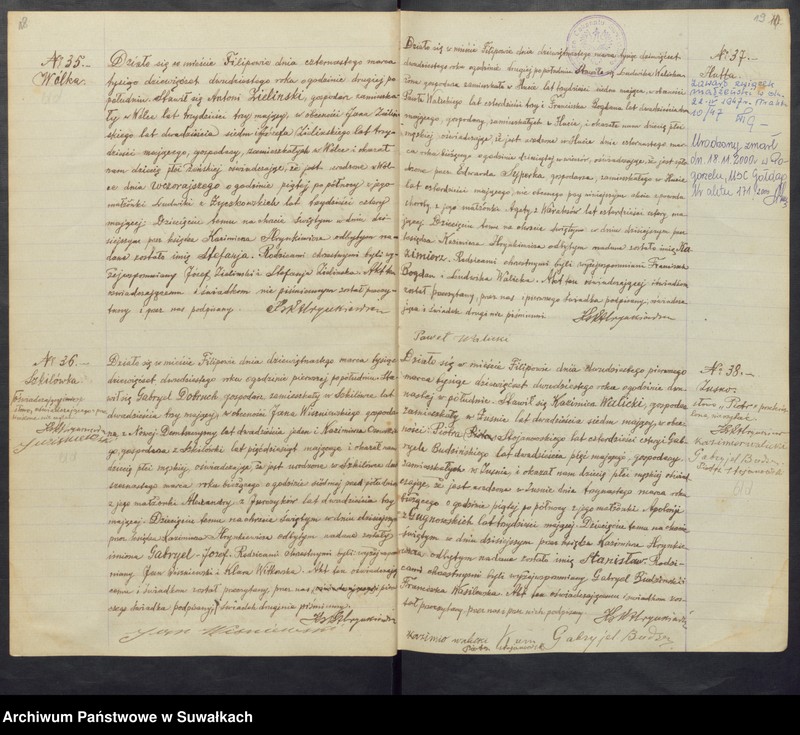 № 35.
Wólka.
Działo się we mieście Filipowie dnia czternastego marca
tysiąc dziewięćset dwudziestego roku o godzinie drugiej po
południu. Stawił się Antoni Zieliński, gospodarz zamieszka-
ły w Wólce lat trzydzieści trzy mający, w obecności Jana Zieliń-
skiego lat dwadzieścia siedm i Józefa Zielińskiego lat trzy-
dzieści mającego, gospodarzy, zamieszkałych w Wólce i okazał
nam dziecię płci żeńskiej oświadczając, że jest urodzone w Wól-
ce dnia wczorajszego o godzinie piątej po północy z jego
małżonki Ludwiki z lat trzydzieści cztery
mającej. Dziecięciu temu na chrzcie świętym w dniu dzi-
siejszym przez księdza Kazimierza Hrynkiewicza odbytym na-
dane zostało imię Stefanja. Rodzicami chrzestnymi byli wy-
żej wspomniany Józef Zieliński i Stefanja Zielińska. Akt ten
oświadczającemu i świadkom nie piśmiennym został przeczy-
tany i przez nas podpisany. Ks. K. Hrynkiewicz
№ 36.
Szkilówka
Działo się w mieście Filipowie, dnia dziewiętnastego marca tysiąc
dziewięćset dwudziestego roku o godzinie pierwszej po południu. Sta-
wił się Gabryel Dobruch, gospodarz zamieszkały w Szkilówce lat
dwadzieścia trzy mający, w obecności Jana Wiśniewskiego gospoda-
rza, z Nowej Dembszczyzny lat dwadzieścia jeden i Kazimierza
gospodarza z Szkilówki lat pięćdziesiąt mającego i okazał nam
dziecię płci męskiej, oświadczając, że jest urodzone w Szkilówce dnia
szesnastego marca roku bieżącego o godzinie siódmej przed południem
z jego małżonki Alexandry z Jurczyków lat dwadzieścia trzy
mającej. Dziecięciu temu na chrzcie świętym w dniu dzisiejszym
przez księdza Kazimierza Hrynkiewicza odbytym nadane zostały
imiona Gabryel-Józef. Rodzicami chrzestnymi byli wyżej wspom-
niany Jan Wiśniewski i Klara Witkowska. Akt ten oświadczają-
cemu i świadkom został przeczytany, przez nas
świadka podpisany, świadek drugi nie piśmienny.
Ks. K. Hrynkiewicz
Jan Wiśniewski
19
№ 37.
Hutta.
zawarł związek
małżeński w dn.
22.IV 1947r. Nr aktu
10/47
Urodzony zmarł
dn. 18.11.2000r. w Po-
gorzelu, USC Gołdap
Nr aktu 171/2000
Działo się w mieście Filipowie dnia dziewiętnastego marca tysiąc dziewięćset
dwudziestego roku o godzinie drugiej po południu. Stawiła się Ludwika Walicka
żona gospodarza zamieszkała w Hucie lat trzydzieści jeden mająca, w obecności
Pawła Walickiego lat czterdzieści trzy i Franciszka Bogdana lat dwadzieścia
mającego, gospodarzy, zamieszkałych w Hucie, i okazała nam dziecię płci
męskiej oświadczając, że jest urodzone w Hucie dnia czternastego mar-
ca roku bieżącego o godzinie dziesiątej wieczór, oświadczając, że jest spło-
dzone przez Edwarda gospodarza, zamieszkałego w Hucie
lat czterdzieści mającego, nie obecnego przy niniejszym akcie z powodu
choroby z jego małżonki Agaty z lat czterdzieści cztery ma-
jącej. Dziecięciu temu na chrzcie świętym w dniu dzisiejszym przez
księdza Kazimierza Hrynkiewicza odbytym nadane zostało imię Ka-
zimierz. Rodzicami chrzestnymi byli wyżej wspomniani Franciszek
Bogdan i Ludwika Walicka. Akt ten oświadczającej i świadkom
został przeczytany, przez nas i pierwszego świadka podpisany, oświadcza-
jąca i świadek drugi nie piśmienni. Ks. K. Hrynkiewicz
Paweł Walicki
№ 38.
Zusno.
słowo „Piotr" przekreś-
lone
Ks. Hrynkiewicz
Kazimierz Walicki
Gabryjel Budzi
Piotr Stojanowski
Działo się w mieście Filipowie dnia dwudziestego pierwszego
marca tysiąc dziewięćset dwudziestego roku o godzinie dwu-
nastej w południe. Stawił się Kazimierz Wielicki, gospodarz
zamieszkały w Zusnie lat dwadzieścia siedm mający, w obec-
ności Piotra Stojanowskiego lat czterdzieści cztery i Gab-
ryela Budzińskiego lat dwadzieścia pięć mającego, gospodarzy,
zamieszkałych w Zusnie, i okazał nam dziecię płci męskiej oświad-
czając, że jest urodzone w Zusnie dnia trzynastego marca roku
bieżącego o godzinie piątej po północy z jego małżonki Apolonji
z Guzynowskich lat trzydzieści mającej. Dziecięciu temu na chrzcie
świętym w dniu dzisiejszym przez księdza Kazimierza Hrynkie-
wicza odbytym nadane zostało imię Stanisław. Rodzi-
cami chrzestnymi byli wyżej wspomniany Gabryel Budziński i
Franciszka Wasilewska. Akt ten oświadczającemu i świadkom zos-
tał przeczytany, przez nas i przez nich podpisany. Ks. K. Hrynkiewicz
Kazimierz Walicki
Piotr Stojanowski
Gabryjel Budzi
Archiwum Państwowe w Suwałkach